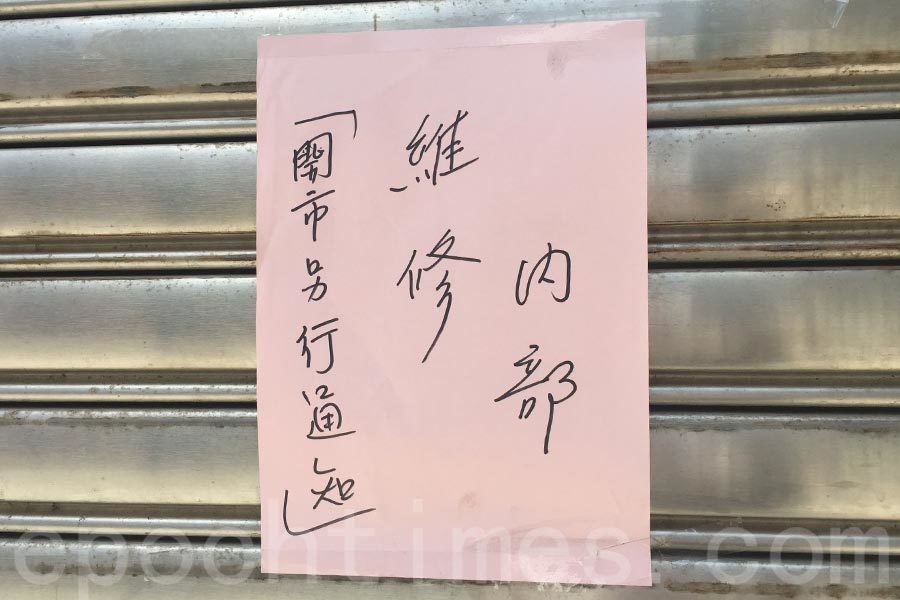 內部
維修
「開市另行通知」
epochtimes.com